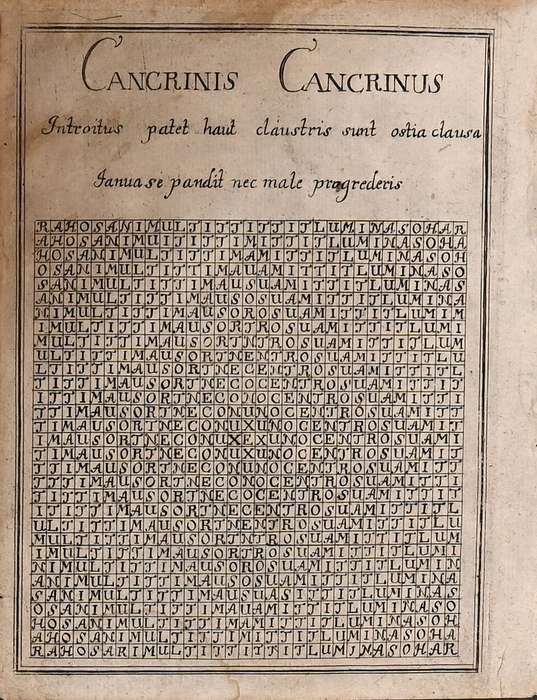 CANCRINIS CANCRINUS
Introitus patet haut claustris sunt ostia clausa
Ianua se pandit nec male progrederis
RAHOSANIMULTITTITTITLUMINASOHAR
AHOSANIMULTITTIMITTITLUMINASOHA
HOSANIMULTITTIMAMITTITLUMINASOH
OSANIMULTITTIMAUAMITTITLUMINASO
SANIMULTITTIMAUSUAMITTITLUMINAS
ANIMULTITTIMAUSOSUAMITTITLUMINA
NIMULTITTIMAUSOROSUAMITTITLUMIN
IMULTITTIMAUSORTROSUAMITTITLUMI
MULTITTIMAUSORTNTROSUAMITTITLUM
ULTITTIMAUSORTNENTROSUAMITTITLU
LTITTIMAUSORTNECENTROSUAMITTITL
TITTIMAUSORTNECOCENTROSUAMITTIT
ITTIMAUSORTNECONOCENTROSUAMITTI
TTIMAUSORTNECONUNOCENTROSUAMITT
TIMAUSORTNECONUXUNOCENTROSUAMIT
IMAUSORTNECONUXEXUNOCENTROSUAMI
TIMAUSORTNECONUXUNOCENTROSUAMIT
TTIMAUSORTNECONUNOCENTROSUAMITT
ITTIMAUSORTNECONOCENTROSUAMITTI
TITTIMAUSORTNECOCENTROSUAMITTIT
LTITTIMAUSORTNECENTROSUAMITTITL
ULTITTIMAUSORTNENTROSUAMITTITLU
MULTITTIMAUSORTNTROSUAMITTITLUM
IMULTITTIMAUSORTROSUAMITTITLUMI
NIMULTITTIMAUSOROSUAMITTITLUMIN
ANIMULTITTIMAUSOSUAMITTITLUMINA
SANIMULTITTIMAUSUAMITTITLUMINAS
OSANIMULTITTIMAUAMITTITLUMINASO
HOSANIMULTITTIMAMITTITLUMINASOH
AHOSANIMULTITTIMITTITLUMINASOHA
RAHOSANIMULTITTITTITLUMINASOHAR